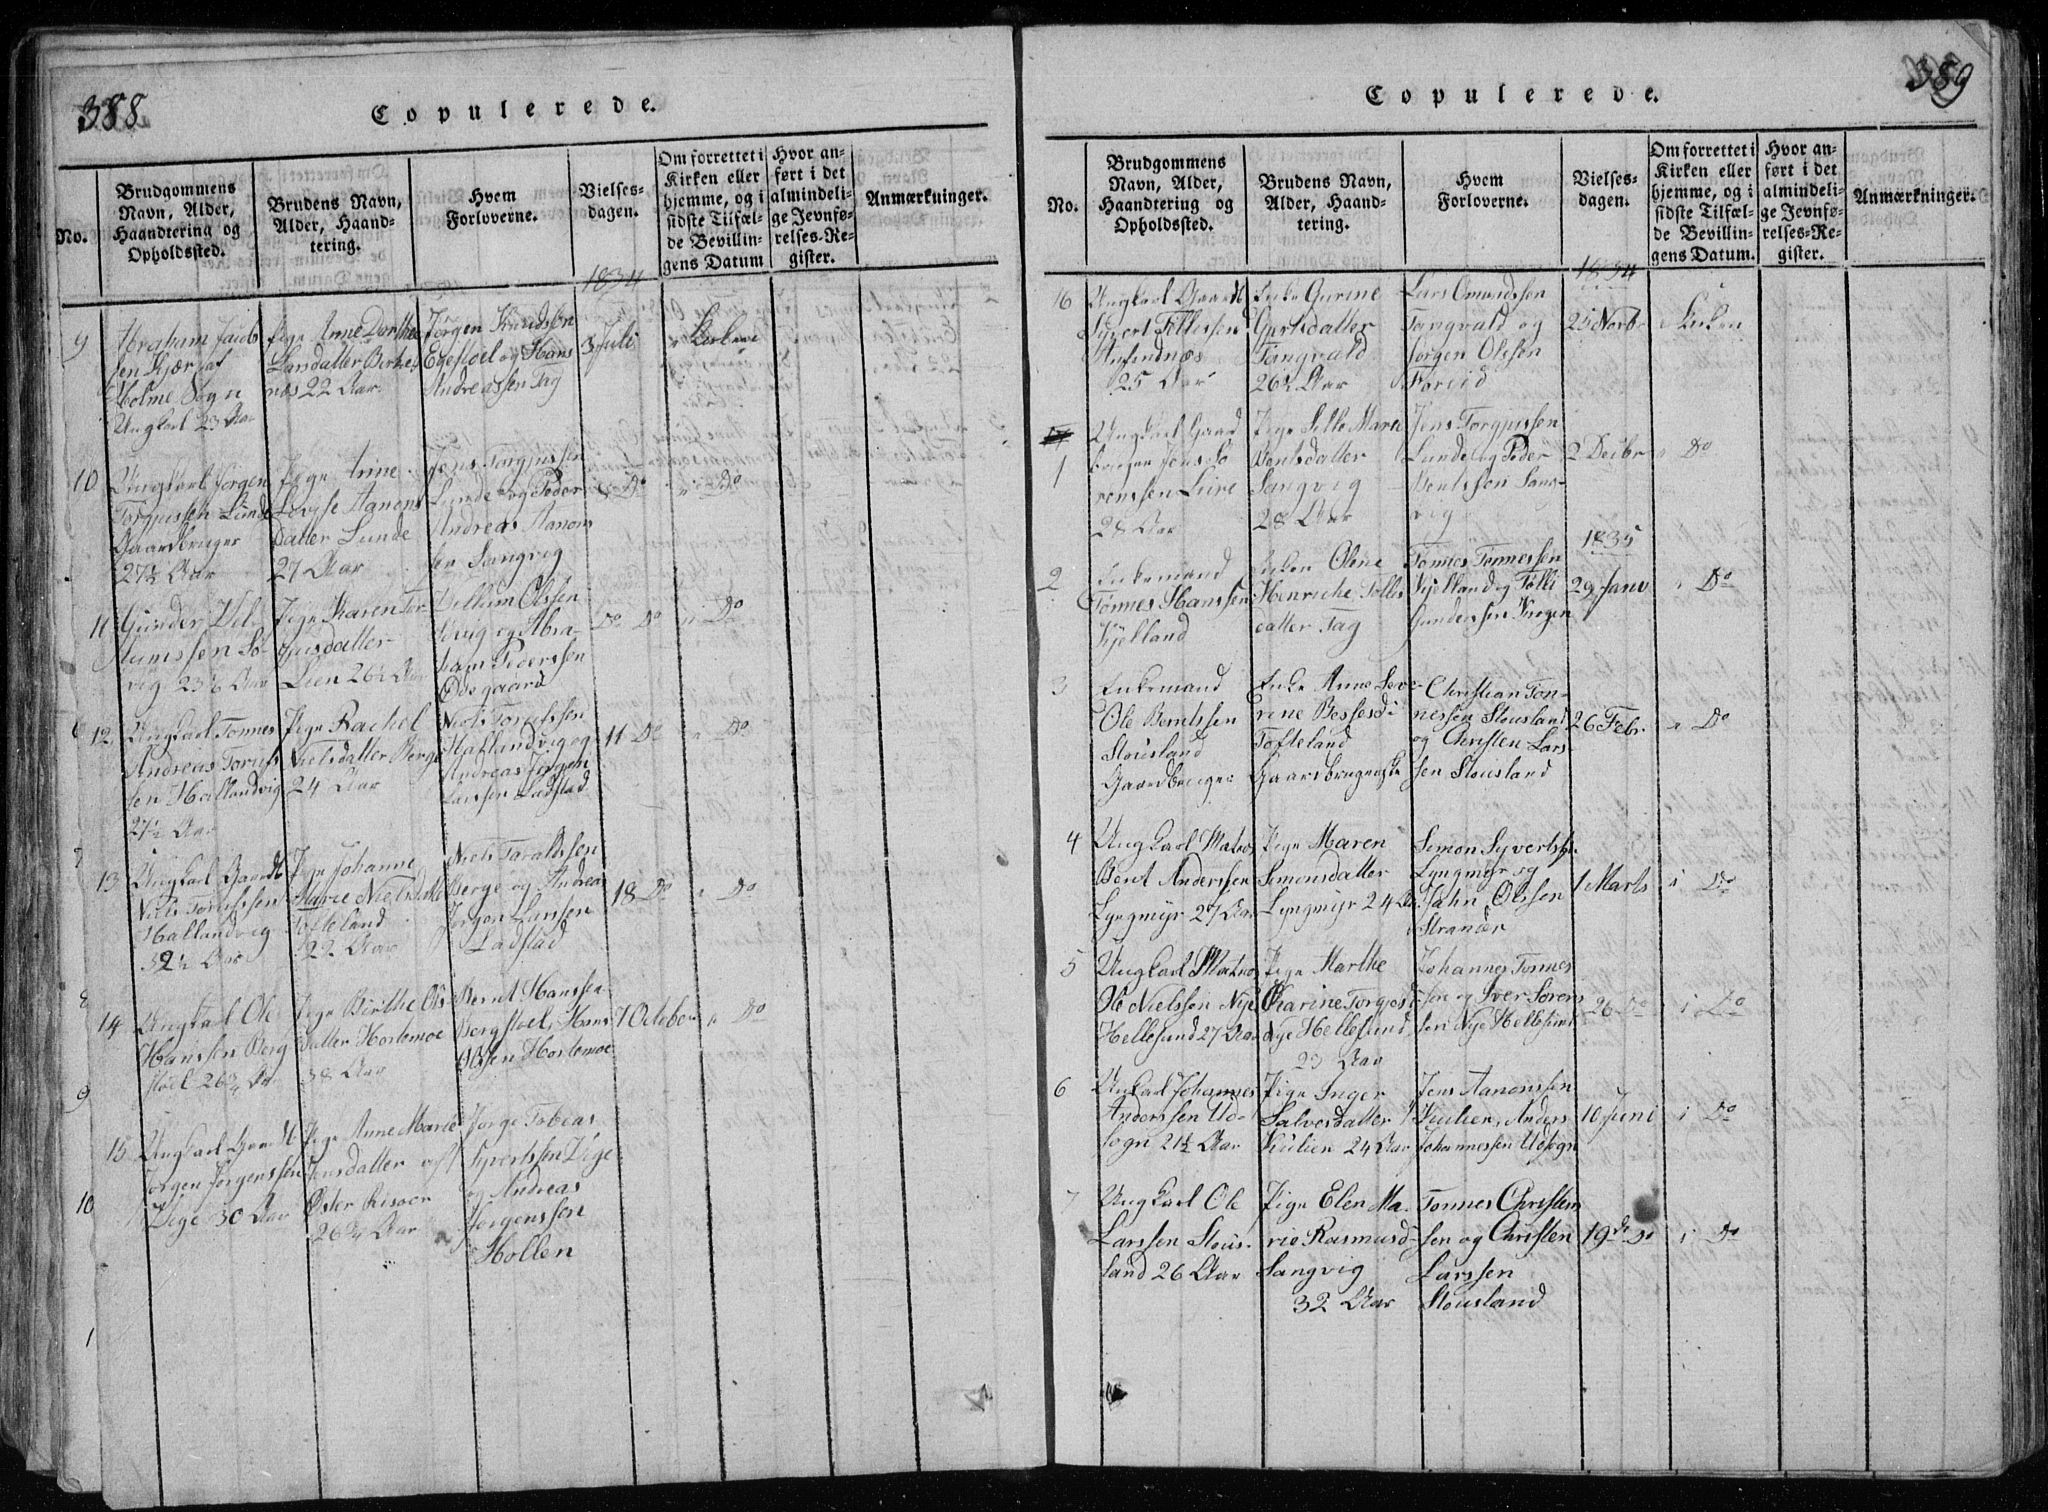 388
Copulerede.
No.
Brudgommens
Navn, Alder,
Haandtering og
Opholdssted.
Brudens Navn,
Alder, Haand-
tering.
Hvem
Forloverne.
Vielses-
dagen.
Om forrettet i
Kirken eller
hjemme, og i
sidste Tilfæl-
de Bevillin-
gens Datum
Hvor an-
ført i det
almindeli-
ge Jevnfø-
relses-Re-
gister.
Anmærkninger.
1834
9
Abraham Jacob
sen Kjær af
Holme Sogn
Ungkarl 23 Aar
Pige Anne Dorthea
Larsdatter Birke
næs 22 Aar
Jørgen Knudssøn
Egestoel og Hans
Andreassen Tag
3 Juli
10
Ungkarl Jørgen
Torgjussen Lunde
Gaardbruger
27½ Aar
Pige Trine
Lovise Aanons
Datter Lunde
27 Aar
Jens Torgjussen
Lunde og Peder
Andreas Aanon
sen Sangvig
8 Do
i Do
11
Gunder Vel-
lumssen So-
vig 23½ Aar
Pige Karen Tor
gjusdatter
Lien 26½ Aar
Vellum Olssen
Sovig og Abra-
ham Pederssen
Odegaard
Do Do
i Do
12
Ungkarl Tønnes
Andreas Torjus
sen Hallandvig
27½ Aar
Pige Rachel
Nielsdatter Berge
24 Aar
Niels Torjussen
Hallandvig og
Andreas Jørgen
Larssen Ladstad
11 Do
Do
13
Ungkarl Gaardb
Niels Torjussen
Hallandvig
32½ Aar
Pige Johanne
Marie Nielsdatter
Tofteland
22 Aar
Niels Taraldssen
Berge og Andreas
Jørgen Larssen
Ladstad
18 Do
Do
14
Ungkarl Ole
Hanssen Berg
stoel 26¾ Aar
Pige Birthe Ols
datter Hortemoe
38 Aar
Bernt Hanssen
Bergstoel, Hans
Olssen Hortemoe
7 October
Do
15
Ungkarl Gaardb
Jørgen Jørgenssen
Vige 30 Aar
Pige Anne Marie
Jensdatter af
Øster Risøer
26¾ Aar
Jørge Tobias
Syvertssen Vige
og Andreas
Jørgenssen
Hollen
389
Copulerede.
No.
Brudgommens
Navn, Alder,
Haandtering og
Opholdssted.
Brudens Navn,
Alder, Haand-
tering.
Hvem
Forloverne.
Vielses-
dagen.
Om forrettet i
Kirken eller
hjemme, og i
sidste Tilfæl-
de Bevillin-
gens Datum.
Hvor an-
ført i det
almindeli-
ge Jevnfø-
relses-Re-
gister.
Anmærkninger.
1834
16
Ungkarl Gaardb
Syvert Tellefsen
25 Aar
Enke Gurine
Gjertsdatter
Tangvald
26½ Aar
Lars Omundssen
Tangvald og
Jørgen Olssen
25 Novbr
i Kirken
1
Ungkarl Gaard
bruger Jens So
renssen Leire
28 Aar
Pige Sille Maria
Berntsdatter
Sangvig
28 Aar
Jens Torgjussen
Lunde og Peder
Berntssøn Sang-
vig
2 Decbr
Do
1835
2
Enkemand
Tønnes Hanssen
Kjelland
Enken Olene
Henriche Tellefs
datter Tag
Tønnes Tønnessen
Kjelland og Telle
Gunderssen Krogen
29 Janv
Do
3
Enkemand
Ole Berntssen
Stousland
Gaardbruger
Enke Anne Seve-
rine
Tofteland
Gaardbrugerske
Christian Ton-
nessen Stousland
og Christen Lars
sen Stousland
26 Febr
Do
4
Ungkarl Matros
Bent Anderssen
Lyngmyr 27 Aar
Pige Maren
Simonsdatter
Lyngmyr 24 Aar
Simon Syvertssen
Lyngmyr og
Jahn Olssen
1 Marts
i Do
5
Ungkarl Matros
Ole Nielssen Nye
Hellesund 27 Aar
Pige Marthe
Karine Torgersd
Nye Hellesund
23 Aar
Johannes Tønnes
sen og Iver Soren
sen Nye Hellesund
26 Do
i Do
6
Ungkarl Johannes
Anderssen Ud-
sogn 21½ Aar
Pige Inger
Salvesdatter
Kulien 24 Aar
Jens Aanonssen
Kulien, Anders
Johannessen Udsogn
10 Juni
i Do
7
Ungkarl Ole
Larssen Stous-
land 26 Aar
Pige Elen Ma-
rie Rasmusd
Sangvig
32 Aar
Tønnes Christen
sen og Christen
Larssen
Stousland
19de Do
i Do